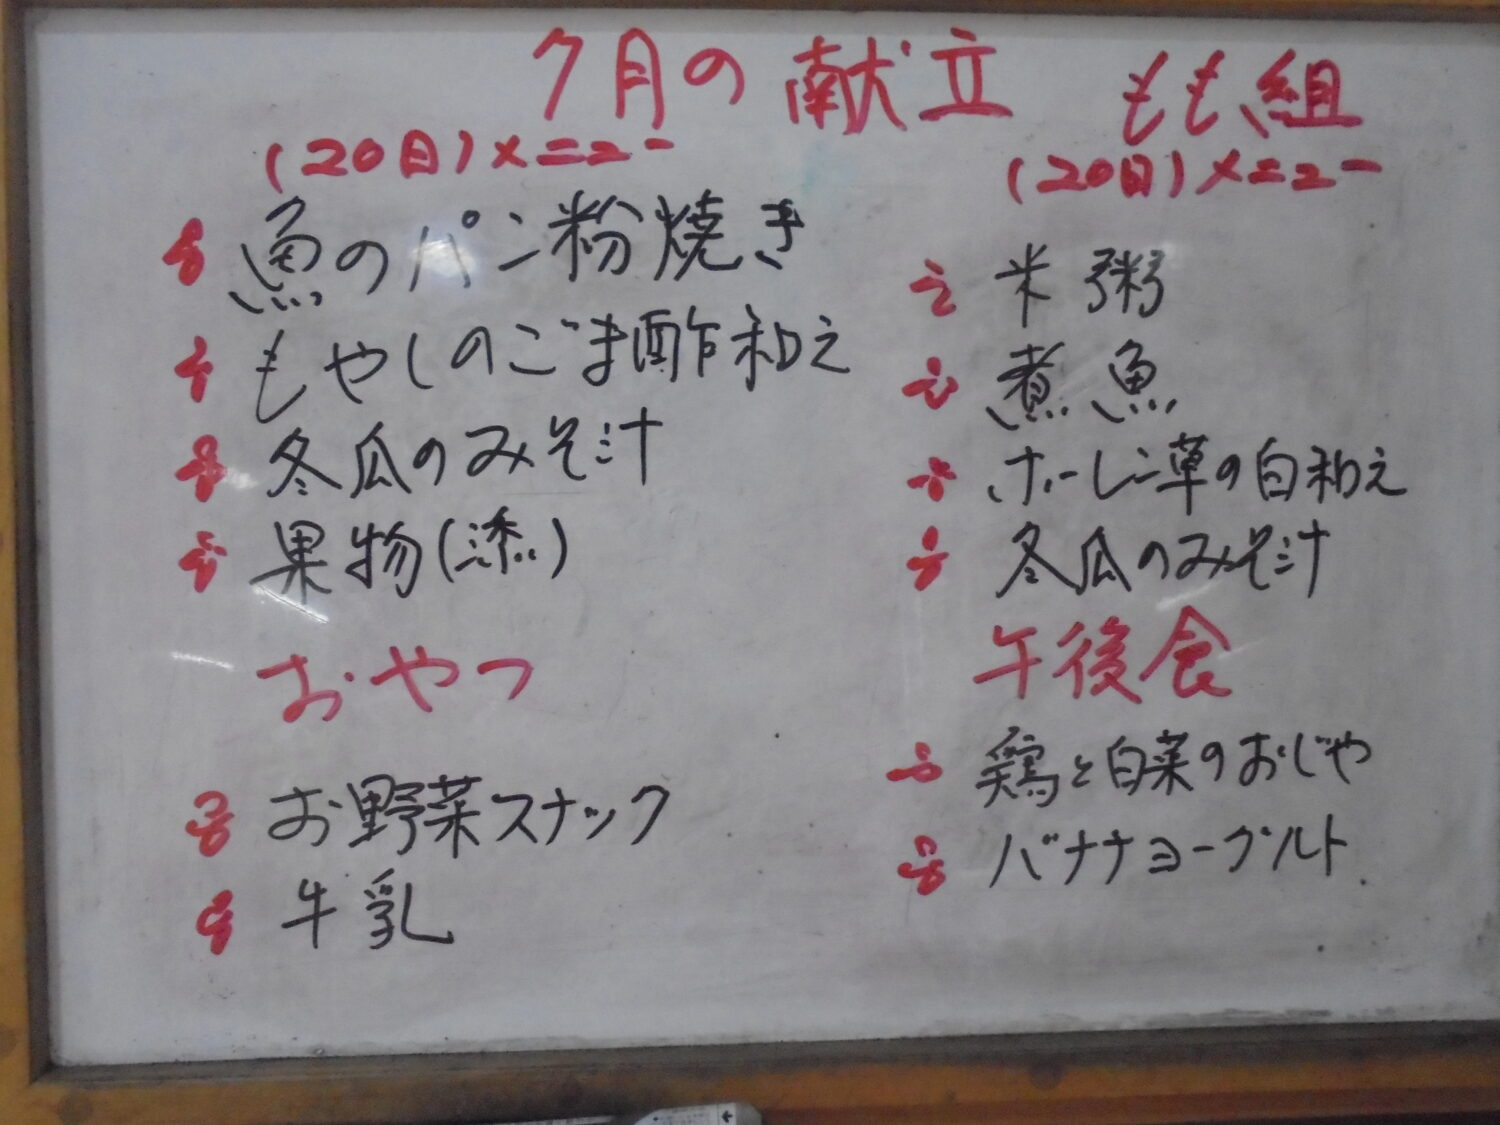 7月の献立 もも組
(20日)メニュー
魚のパン粉焼き
もやしのごま酢和え
冬瓜のみそ汁
果物(添)
おやつ
お野菜スナック
牛乳
(20日)メニュー
米粥
煮魚
ホーレン草の白和え
冬瓜のみそ汁
午後食
鶏と白菜のおじや
バナナヨーグルト